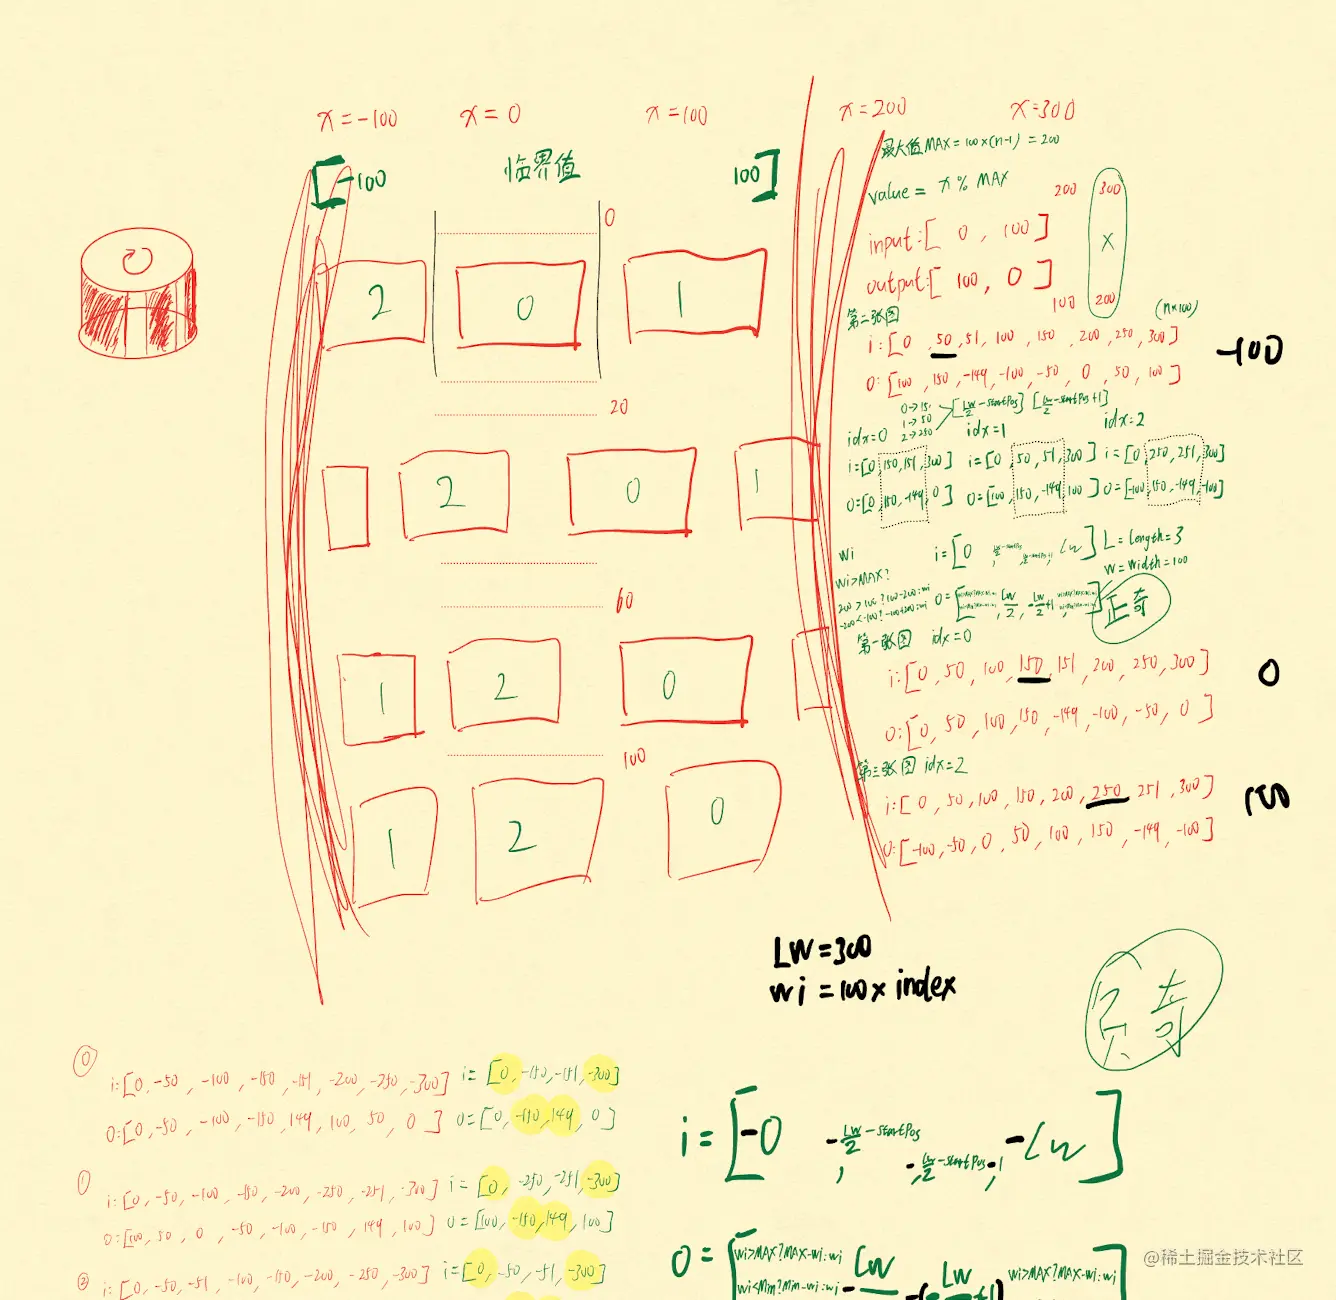 x=-100 x=0 x=100 x=200 x=300
最大值MAX=100x(n-1)=200
[-100 临界值 100]
value = x % MAX
200 300
0
input:[ 0 , 100 ]
x
output:[ 100 , 0 ]
100 200
2 0 1
第二张图 (n×100)
i:[0 ,50,51, 100 , 150 , 200,250,300]
-100
o:[100, 150,-149,-100,-50, 0 , 50, 100]
20
0→150
1→50
2→250
[LW/2-startPos] [LW/2-startPos+1]
idx=0 idx=1 idx=2
i=[0,150,151,300] i=[0,50,51,300] i=[0,250,251,300]
o=[0,150,-149,0] o=[100,150,-149,100] o=[-100,150,-149,-100]
2 0 1
wi
i=[0 , LW/2-startPos, LW/2-startPos+1, LW] L=length=3
w=width=100
wi>MAX?
LW/2, -LW/2+1
正奇
60
第一张图 idx=0
i:[0,50,100,150,151,200,250,300]
0
o:[0,50,100,150,-149,-100,-50,0]
1 2 0
100
第三张图 idx=2
i:[0,50,100,150,200,250,251,300]
o:[-100,-50,0,50,100,150,-149,-100]
1 2 0
LW=300
wi=100x index
负奇
0
i:[0,-50,-100,-150,-151,-200,-250,-300] i=[0,-150,-151,-300]
o:[0,-50,-100,-150,149,100,50,0] o=[0,-150,149,0]
i=[-0 , -LW/2-startPos, -LW/2-startPos-1, -LW]
1
i:[0,-50,-100,-150,-200,-250,-251,-300] i=[0,-250,-251,-300]
o:[100,50,0,-50,-100,-150,149,100] o=[100,-150,149,100]
2
i:[0,-50,-51,-100,-150,-200,-250,-300] i=[0,-50,-51,-300]
o=[wi>MAX?MAX-wi:wi LW wi>MAX?MAX-wi:wi]
wi<Min?Min-wi:wi
@稀土掘金技术社区